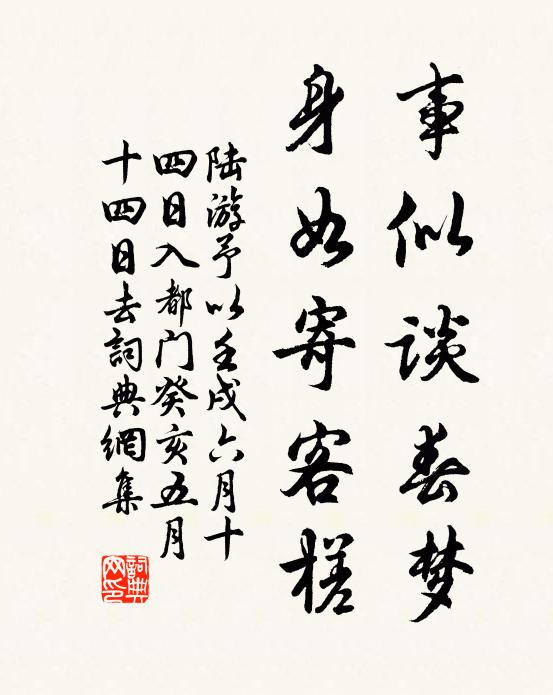 事似談春梦
身如寄客槎
陆游予以壬戌六月十
四日入都门癸亥五月
十四日去詞典網集
詞典
网印